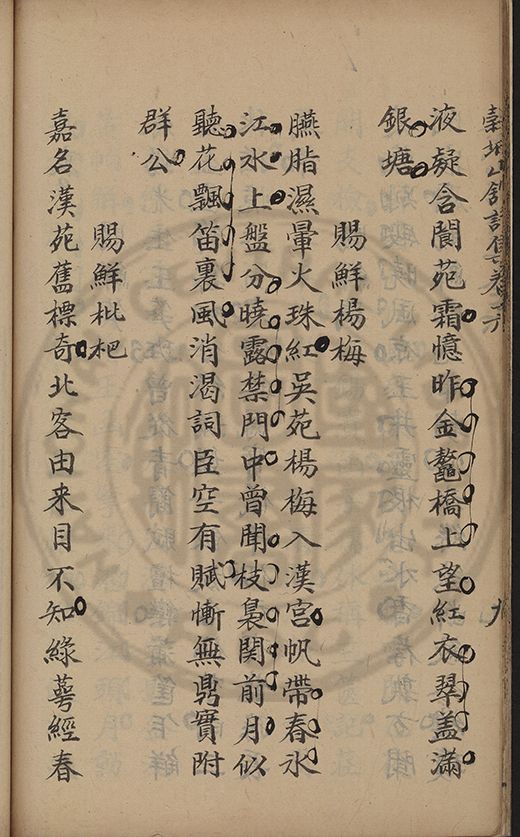 穀城山館詩集卷之六
九
液疑含閬苑霜憶昨金鼇橋上望紅衣翠盖滿
銀塘
賜鮮楊梅
臙脂濕暈火珠紅吳苑楊梅入漢宮帆帶春水
江水上盤分曉露禁門中曾聞枝裊関前月似
聽花飄笛裏風消渴詞臣空有賦慚無鼎實附
群公
賜鮮枇杷
嘉名漢苑舊標奇北客由来目不知綠萼經春